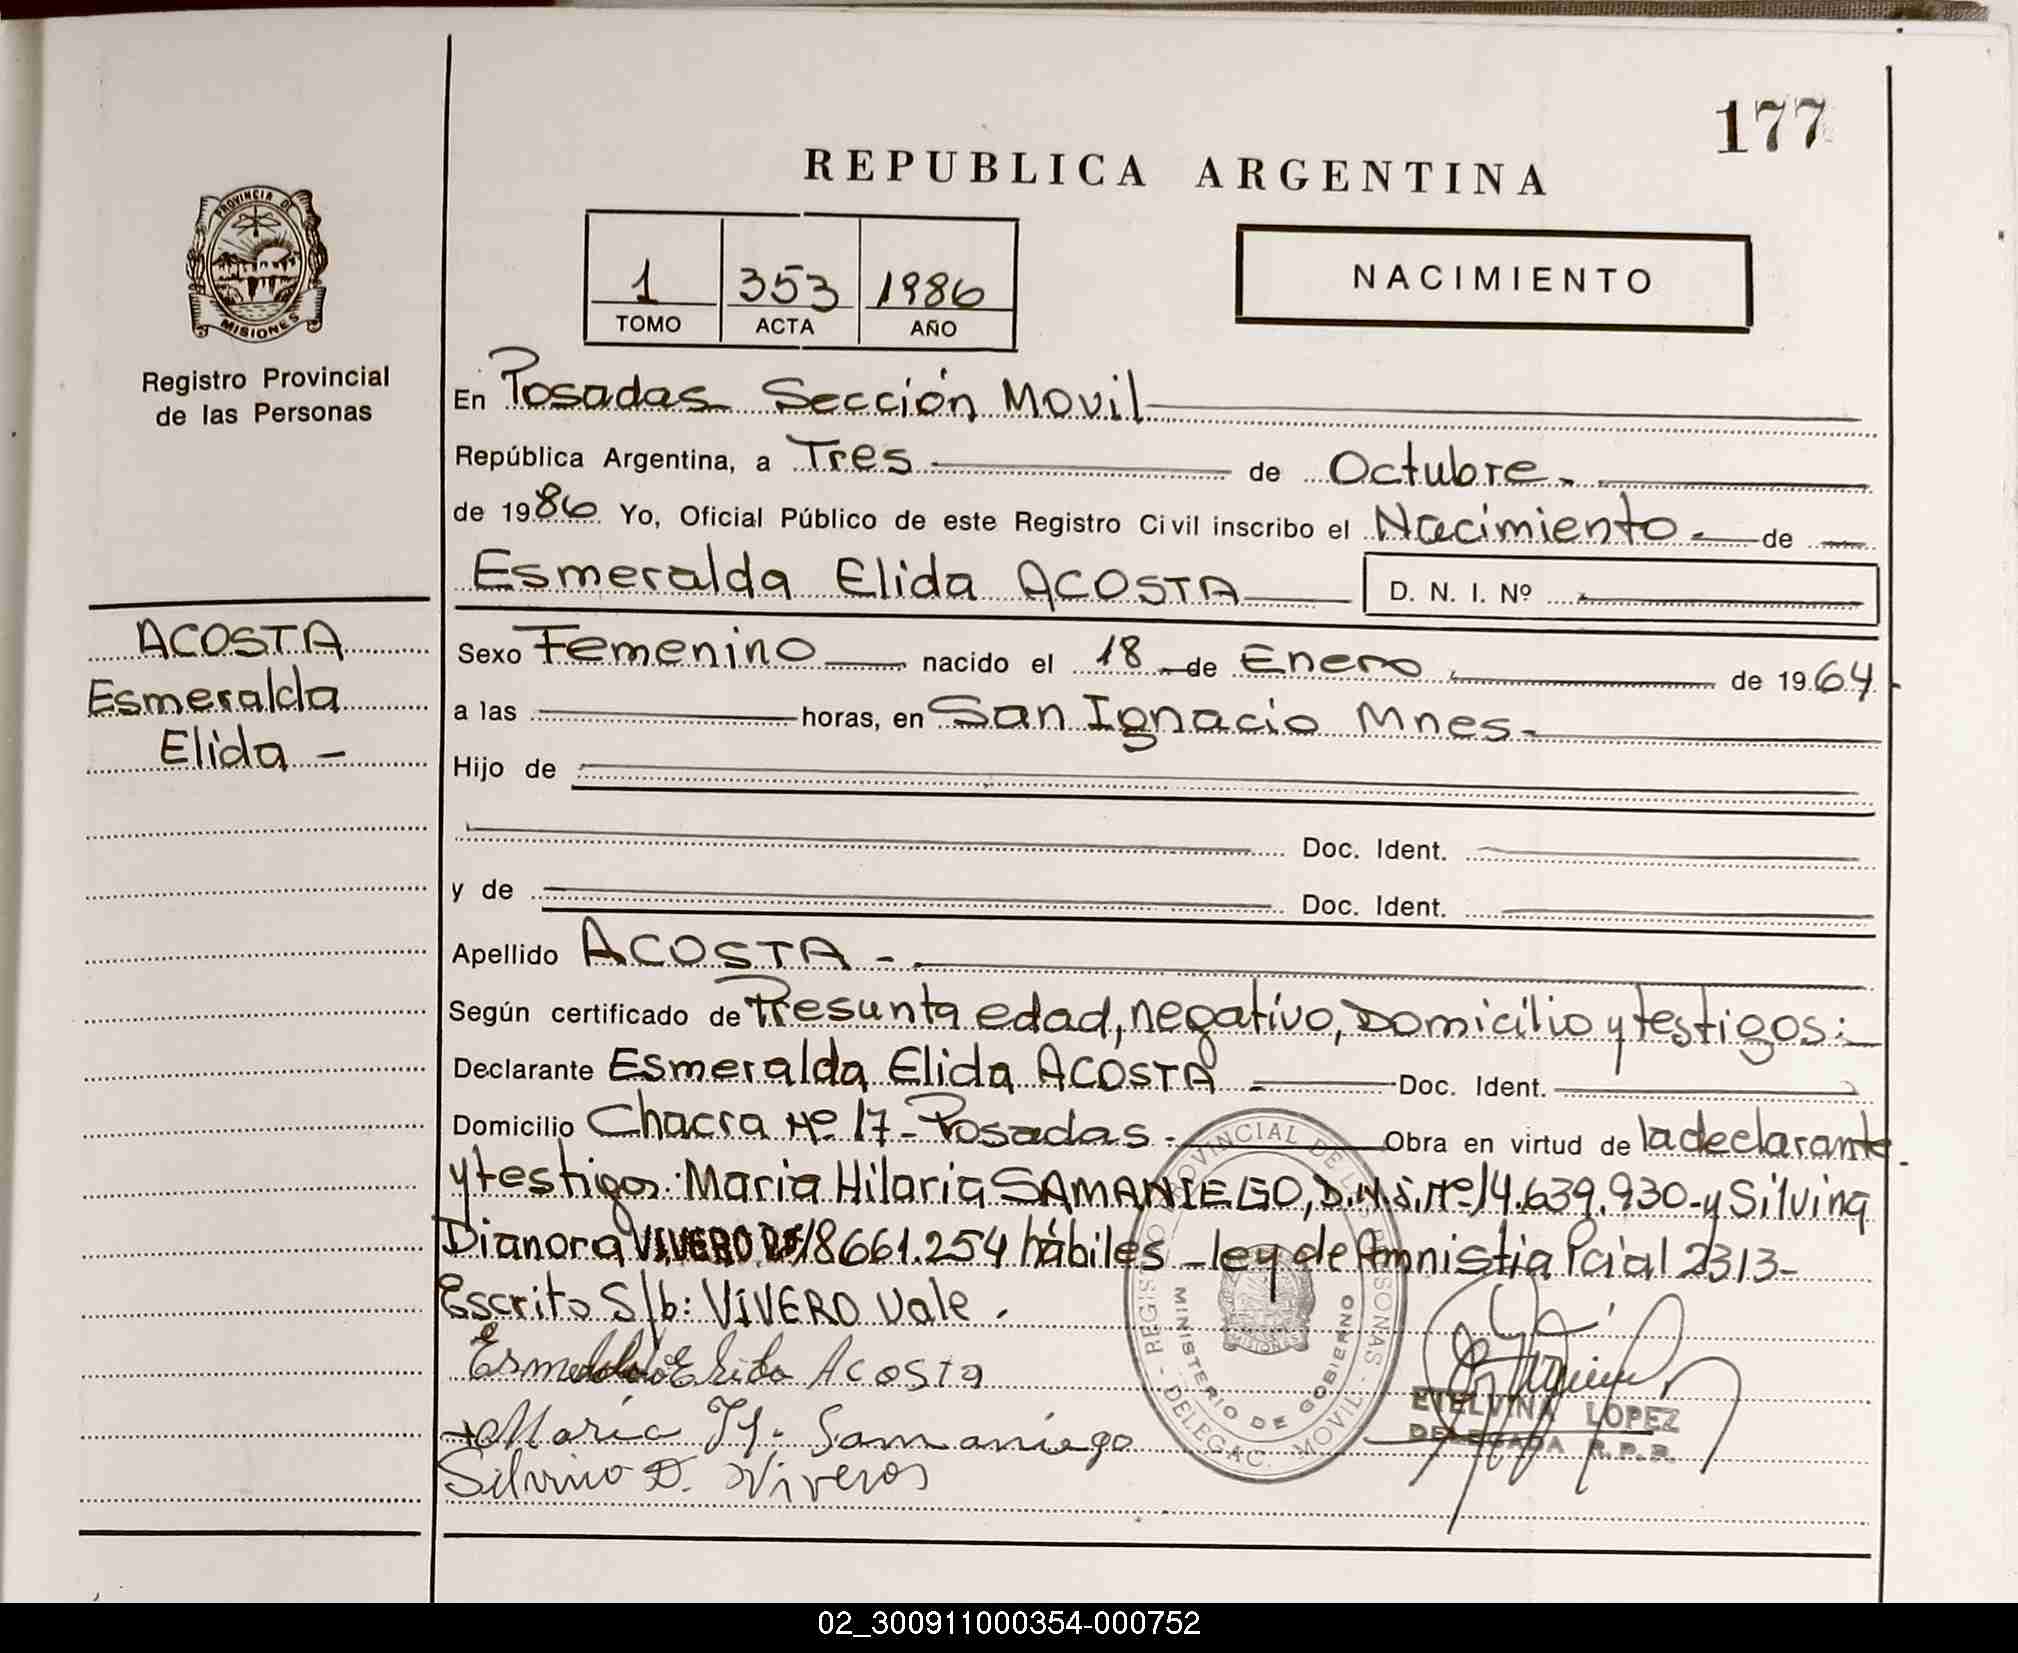 177
REPUBLICA ARGENTINA
PROVINCIA DE
MISIONES
Registro Provincial
de las Personas
1 353 1986
TOMO ACTA AÑO
NACIMIENTO
En Posadas Sección Movil
República Argentina, a Tres de Octubre.
de 1986 Yo, Oficial Público de este Registro Civil inscribo el Nacimiento - de
Esmeralda Elida ACOSTA D. N. I. Nº
ACOSTA
Esmeralda
Elida -
Sexo Femenino nacido el 18 de Enero de 1964
a las horas, en San Ignacio Mnes.
Hijo de
Doc. Ident.
y de Doc. Ident.
Apellido ACOSTA -
Según certificado de Presunta edad, negativo, Domicilio y testigos:
Declarante Esmeralda Elida ACOSTA Doc. Ident.
Domicilio Chacra Nº 17 - Posadas. Obra en virtud de la declarante
y testigos: Maria Hilaria SAMANIEGO, D.N.I. Nº 14.639.930 - y Silvina
Dianora VIVERO 18661.254 hábiles - ley de Amnistia Pcial 2313 -
Escrito S/b: VIVERO Vale.
Esmeralda Elida Acosta
Maria H. Samaniego
Silvino D. Viveros
REGISTRO PROVINCIAL DE LAS PERSONAS - DELEGAC. MOVIL -
MINISTERIO DE GOBIERNO
ETELVINA LOPEZ
DELEGADA R.P.P.
02_300911000354-000752